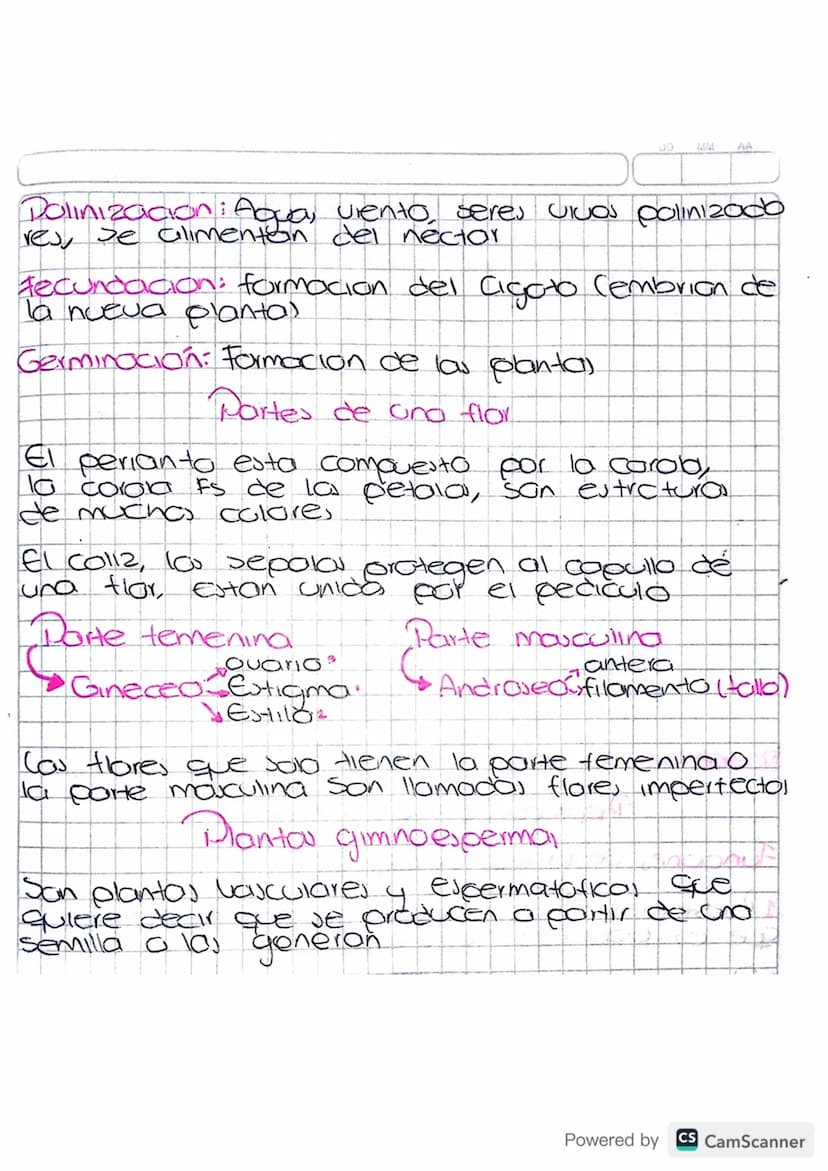 DD MM AA
Polinizacion: Agua, viento, seres vivos polinizado
res, se alimentan del nectar
fecundacion: formacion del cigoto (embrion de
la nueva planta)
Germinación: Formacion de las plantas
Partes de una flor
El perianto esta compuesto por la corola,
la corola Es de los petalos, son estrctura
de muchos colores
El caliz, los sepalos protegen al capullo de
una flor, Estan unidos por el pediculo
Parte femenina Parte masculina
ovario 3 antera
Gineceo Estigma 1 Androseo filamento (tallo)
Estilo 2
Las flores que solo tienen la parte femenina o
la parte masculina son llamadas flores imperfectas
Plantas gimnoespermas
Son plantas vasculares y espermatoficas que
quiere decir que se producen a partir de una
semilla o las generan
Powered by CS CamScanner